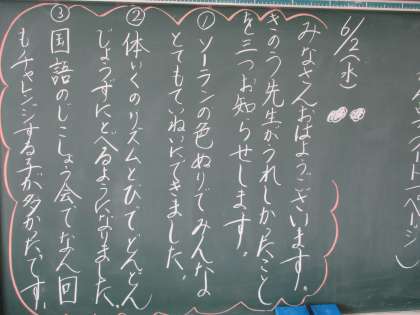 6/2(水)
みなさんおはようございます。
きのう先生がうれしかったこと
を三つお知らせします。
①ソーランの色ぬりでみんなよ
とてもていねいにできました。
②体いくのリズムとびでどんどん
じょうずにとべるようになりました。
③国語のじこしょう会でなん回
もチャレンジする子が多かったです。